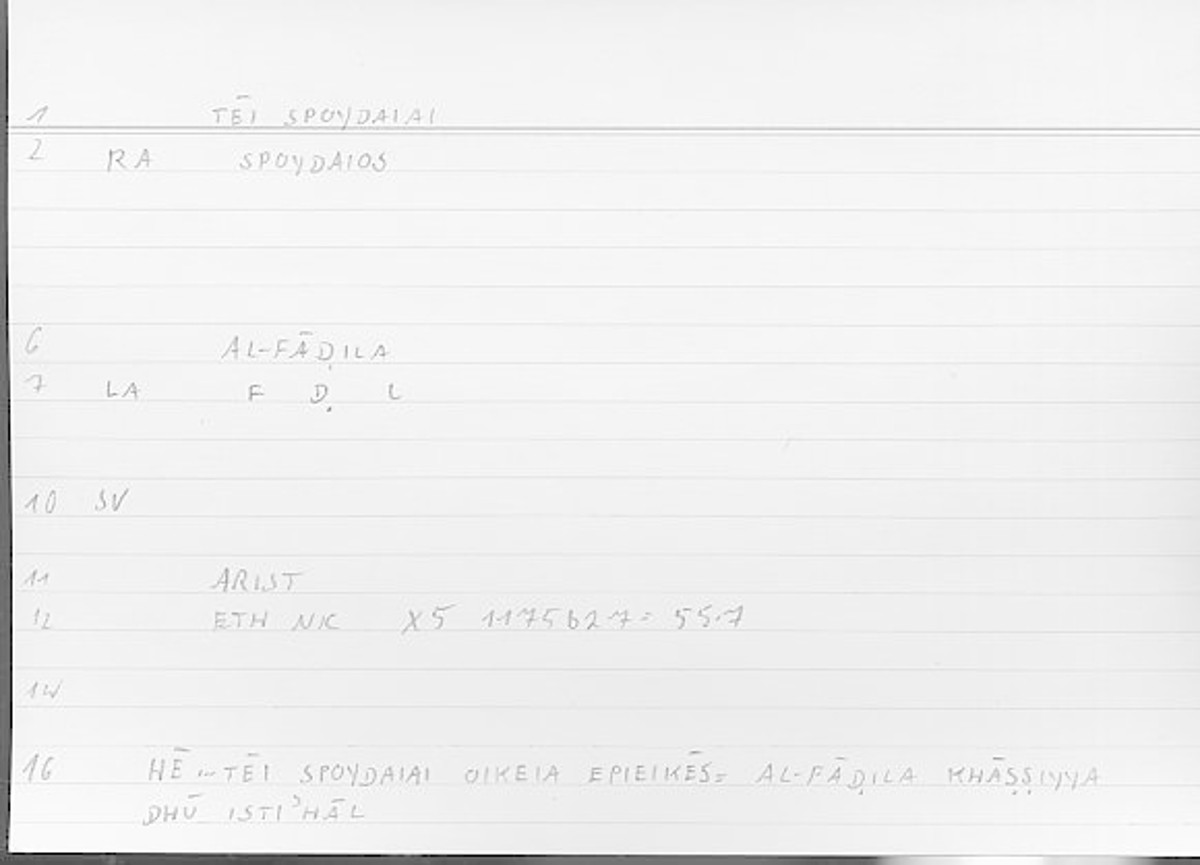 1 TĒI SPOYDAIAI
2 RA SPOYDAIOS
6 AL-FĀḌILA
7 LA F Ḍ L
10 SV
11 ARIST
12 ETH NIC X5 1175b27= 55.7
14
16 HĒ...TĒI SPOYDAIAI OIKEIA EPIEIKĒS= AL-FĀḌILA KHĀṢṢIYYA
DHŪ ISTIʾHĀL